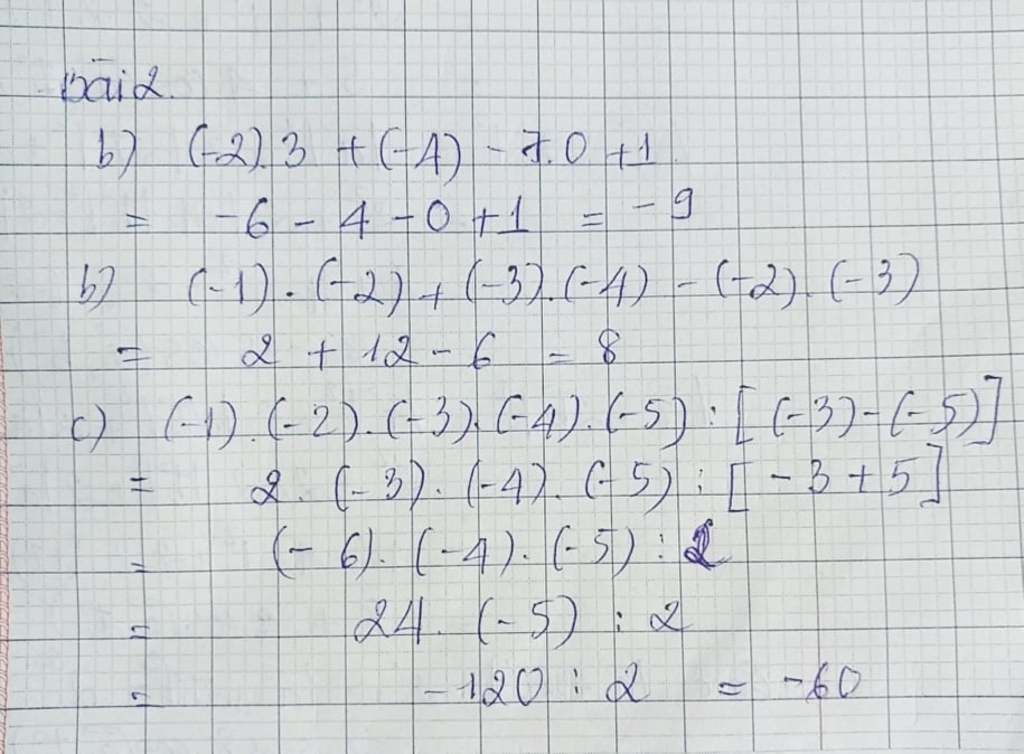 Bài 2.
b) (-2).3 + (-4) - 7.0 + 1
= -6 - 4 - 0 + 1 = -9
b) (-1) . (-2) + (-3).(-4) - (-2).(-3)
= 2 + 12 - 6 = 8
c) (-1).(-2).(-3).(-4).(-5) : [(-3)-(-5)]
= 2 . (-3) . (-4) . (-5) : [-3 + 5]
= (-6) . (-4) . (-5) : 2
= 24 . (-5) : 2
= -120 : 2 = -60